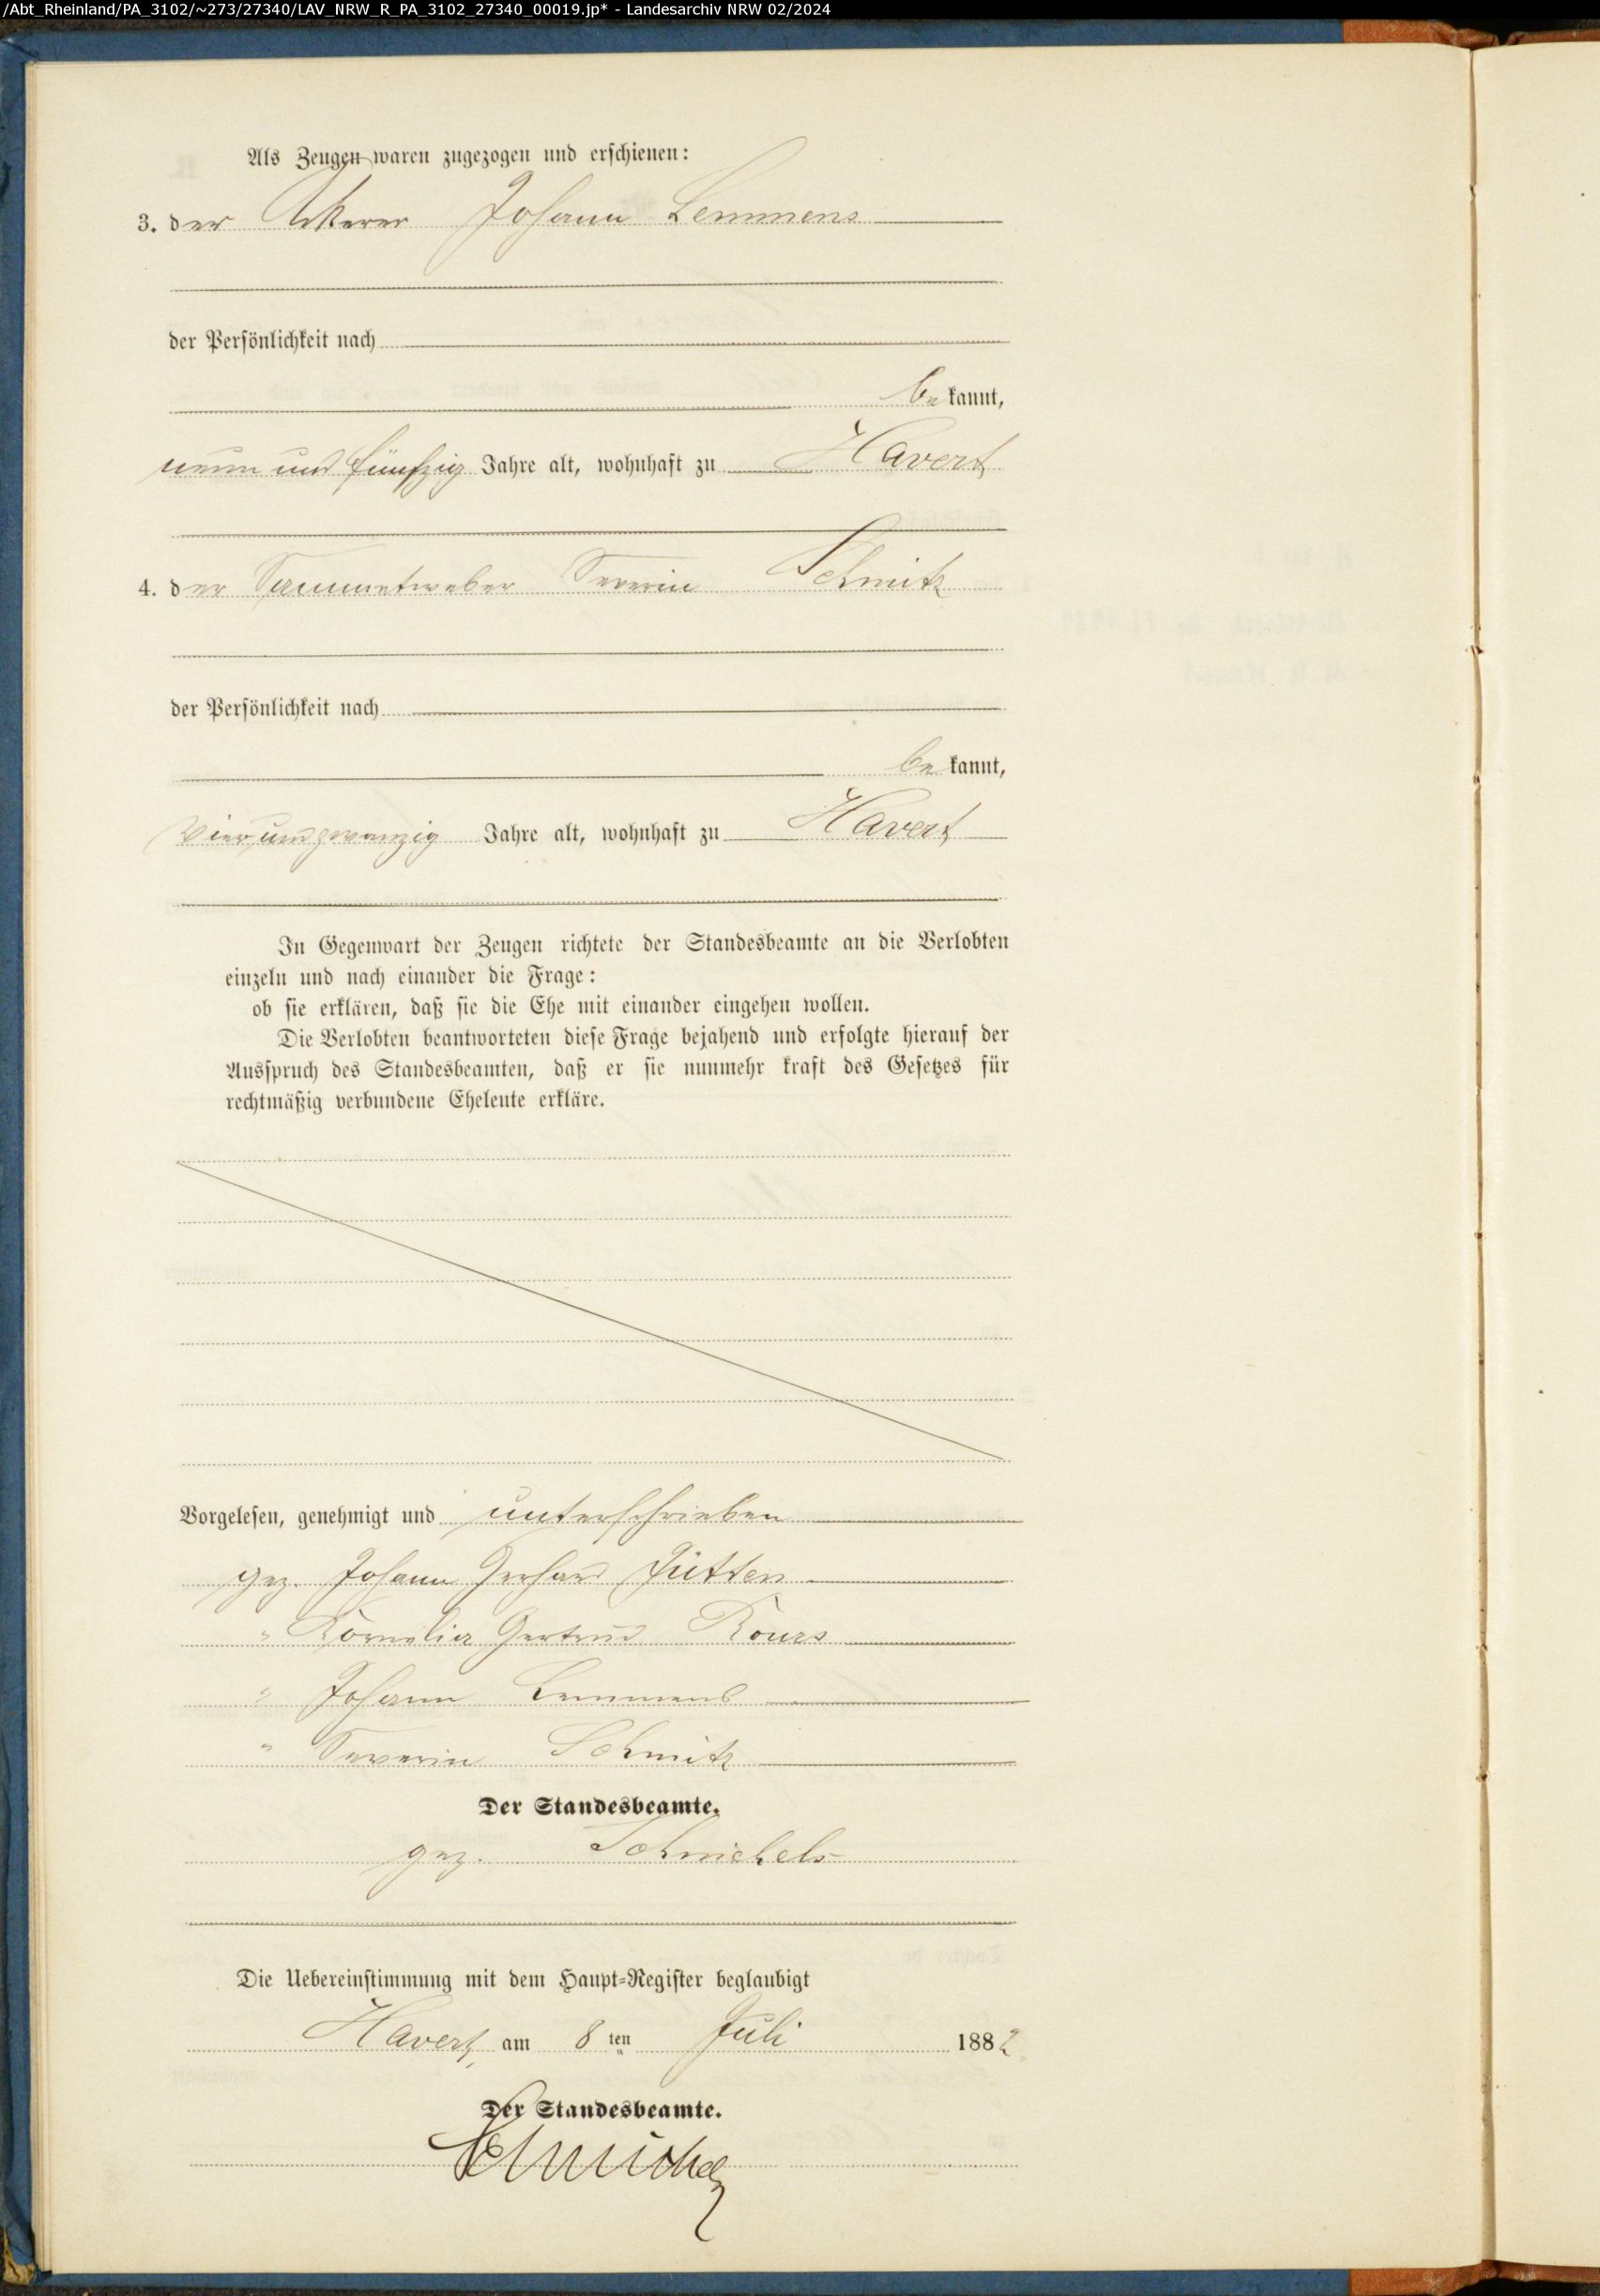 /Abt_Rheinland/PA_3102/~273/27340/LAV_NRW_R_PA_3102_27340_00019.jp* - Landesarchiv NRW 02/2024
Als Zeugen waren zugezogen und erschienen:
3. der Ackerer Johann Lemmens
der Persönlichkeit nach
be kannt,
neun und fünfzig Jahre alt, wohnhaft zu Havert
4. der Sammetweber Severin Schmitz
der Persönlichkeit nach
be kannt,
vier und zwanzig Jahre alt, wohnhaft zu Havert
In Gegenwart der Zeugen richtete der Standesbeamte an die Verlobten
einzeln und nach einander die Frage:
ob sie erklären, daß sie die Ehe mit einander eingehen wollen.
Die Verlobten beantworteten diese Frage bejahend und erfolgte hierauf der
Ausspruch des Standesbeamten, daß er sie nunmehr kraft des Gesetzes für
rechtmäßig verbundene Eheleute erkläre.
Vorgelesen, genehmigt und unterschrieben
gez. Johann Gerhard Jütten
" Kornelia Gertrud
" Johann Lemmens
" Severin Schmitz
Der Standesbeamte.
gez. Schmichels
Die Uebereinstimmung mit dem Haupt-Register beglaubigt
Havert, am 8 ten Juli 1882
Der Standesbeamte.
Schmichels